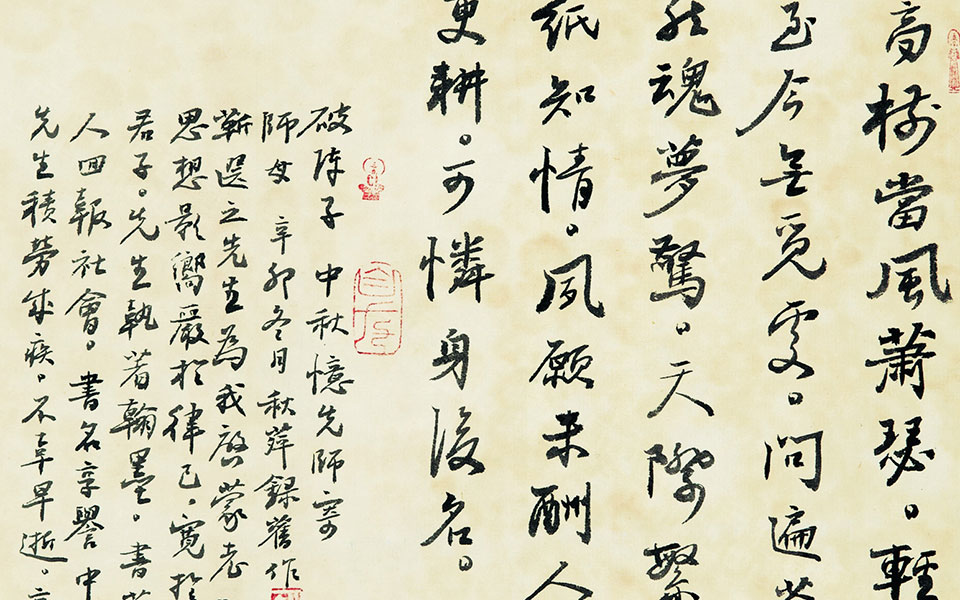 高樹當風蕭瑟。輕
至今無覓處。問遍
魂夢驚。天際繁
紙知情。夙願未酬人
更耕。可憐身後名。
破阵子 中秋憶先師寄
師母 辛卯冬月秋萍錄舊作
靳選之先生為我啟蒙老
思想影響嚴於律己。寬於
君子。先生執著翰墨。書
人回報社會。書名享譽中
先生積勞成疾。不幸早逝。